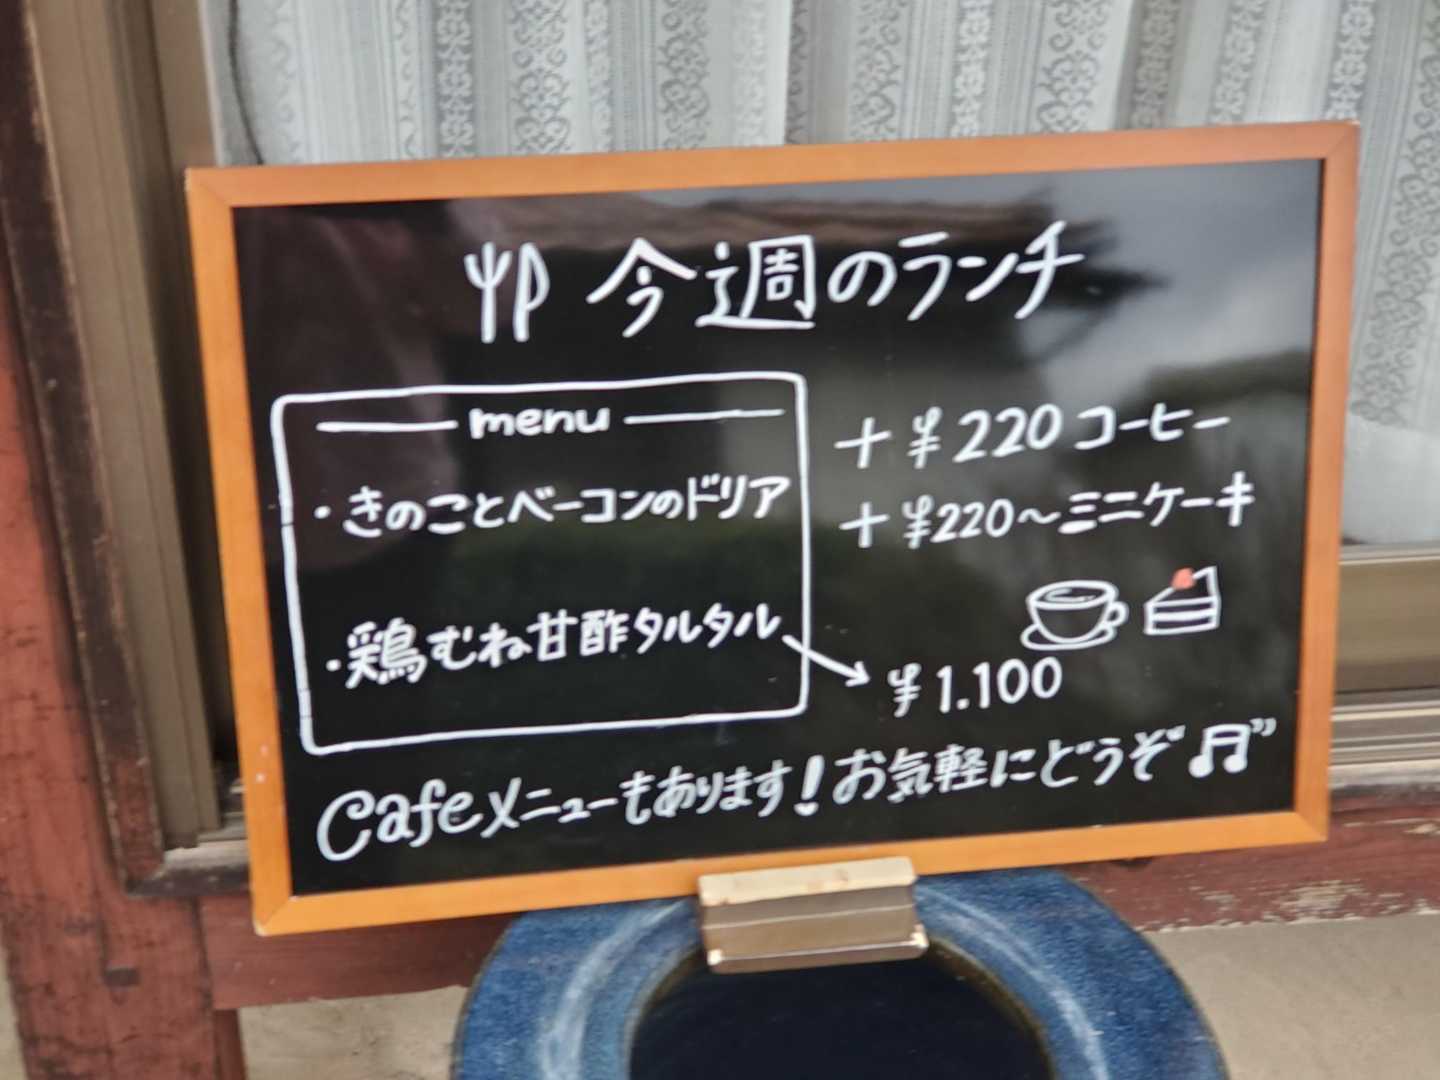 今週のランチ
menu
・きのことベーコンのドリア
・鶏むね甘酢タルタル
+¥220 コーヒー
+¥220～ミニケーキ
¥1.100
Cafeメニューもあります！お気軽にどうぞ♫